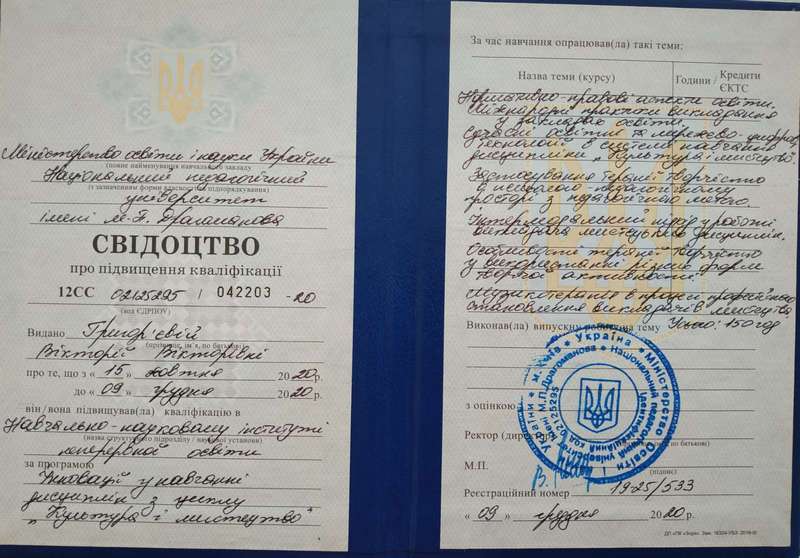 Міністерство освіти і науки України
(повне найменування навчального закладу
Національний педагогічний
(з зазначенням форми власності та підпорядкування)
університет
імені М.П. Драгоманова
СВІДОЦТВО
про підвищення кваліфікації
12СС 02125295 / 042203 -20
(код ЄДРПОУ)
Видано Григор'євій
(прізвище, ім'я, по батькові)
Вікторії Вікторівні
про те, що з « 15 » жовтня 2020 р.
до « 09 » грудня 2020 р.
він/вона підвищував(ла) кваліфікацію в
Навчально-науковому інституті
(назва структурного підрозділу / наукової установи)
неперервної освіти
за програмою
Інновації у навчанні
дисциплін з циклу
„Культура і мистецтво"
За час навчання опрацював(ла) такі теми:
Назва теми (курсу) Години / Кредити ЄКТС
Нормативно-правові аспекти освіти.
Міжнародні практики викладання
у закладах освіти.
Сучасні освітні та мережево-цифрові
технології в системі навчання
дисципліни „Культура і мистецтво".
Застосування терапії творчістю
в
просторі з педагогічною метою.
Інтермедіальний підхід у роботі
викладача мистецьких дисциплін.
Особливості терапії творчістю
у використанні різних форм
активності.
Музикотерапія в процесі професійного
становлення викладачів мистецтва.
Усього: 150 год
Виконав(ла) випускну роботу на тему
з оцінкою
Ректор (директор)
по батькові)
М.П.
(підпис)
Україна * Міністерство Освіти і науки України * м. Київ *
Національний педагогічний університет імені М.П.Драгоманова
Ідентифікаційний код 02125295
Реєстраційний номер 1925/533
« 09 » грудня 2020 р.